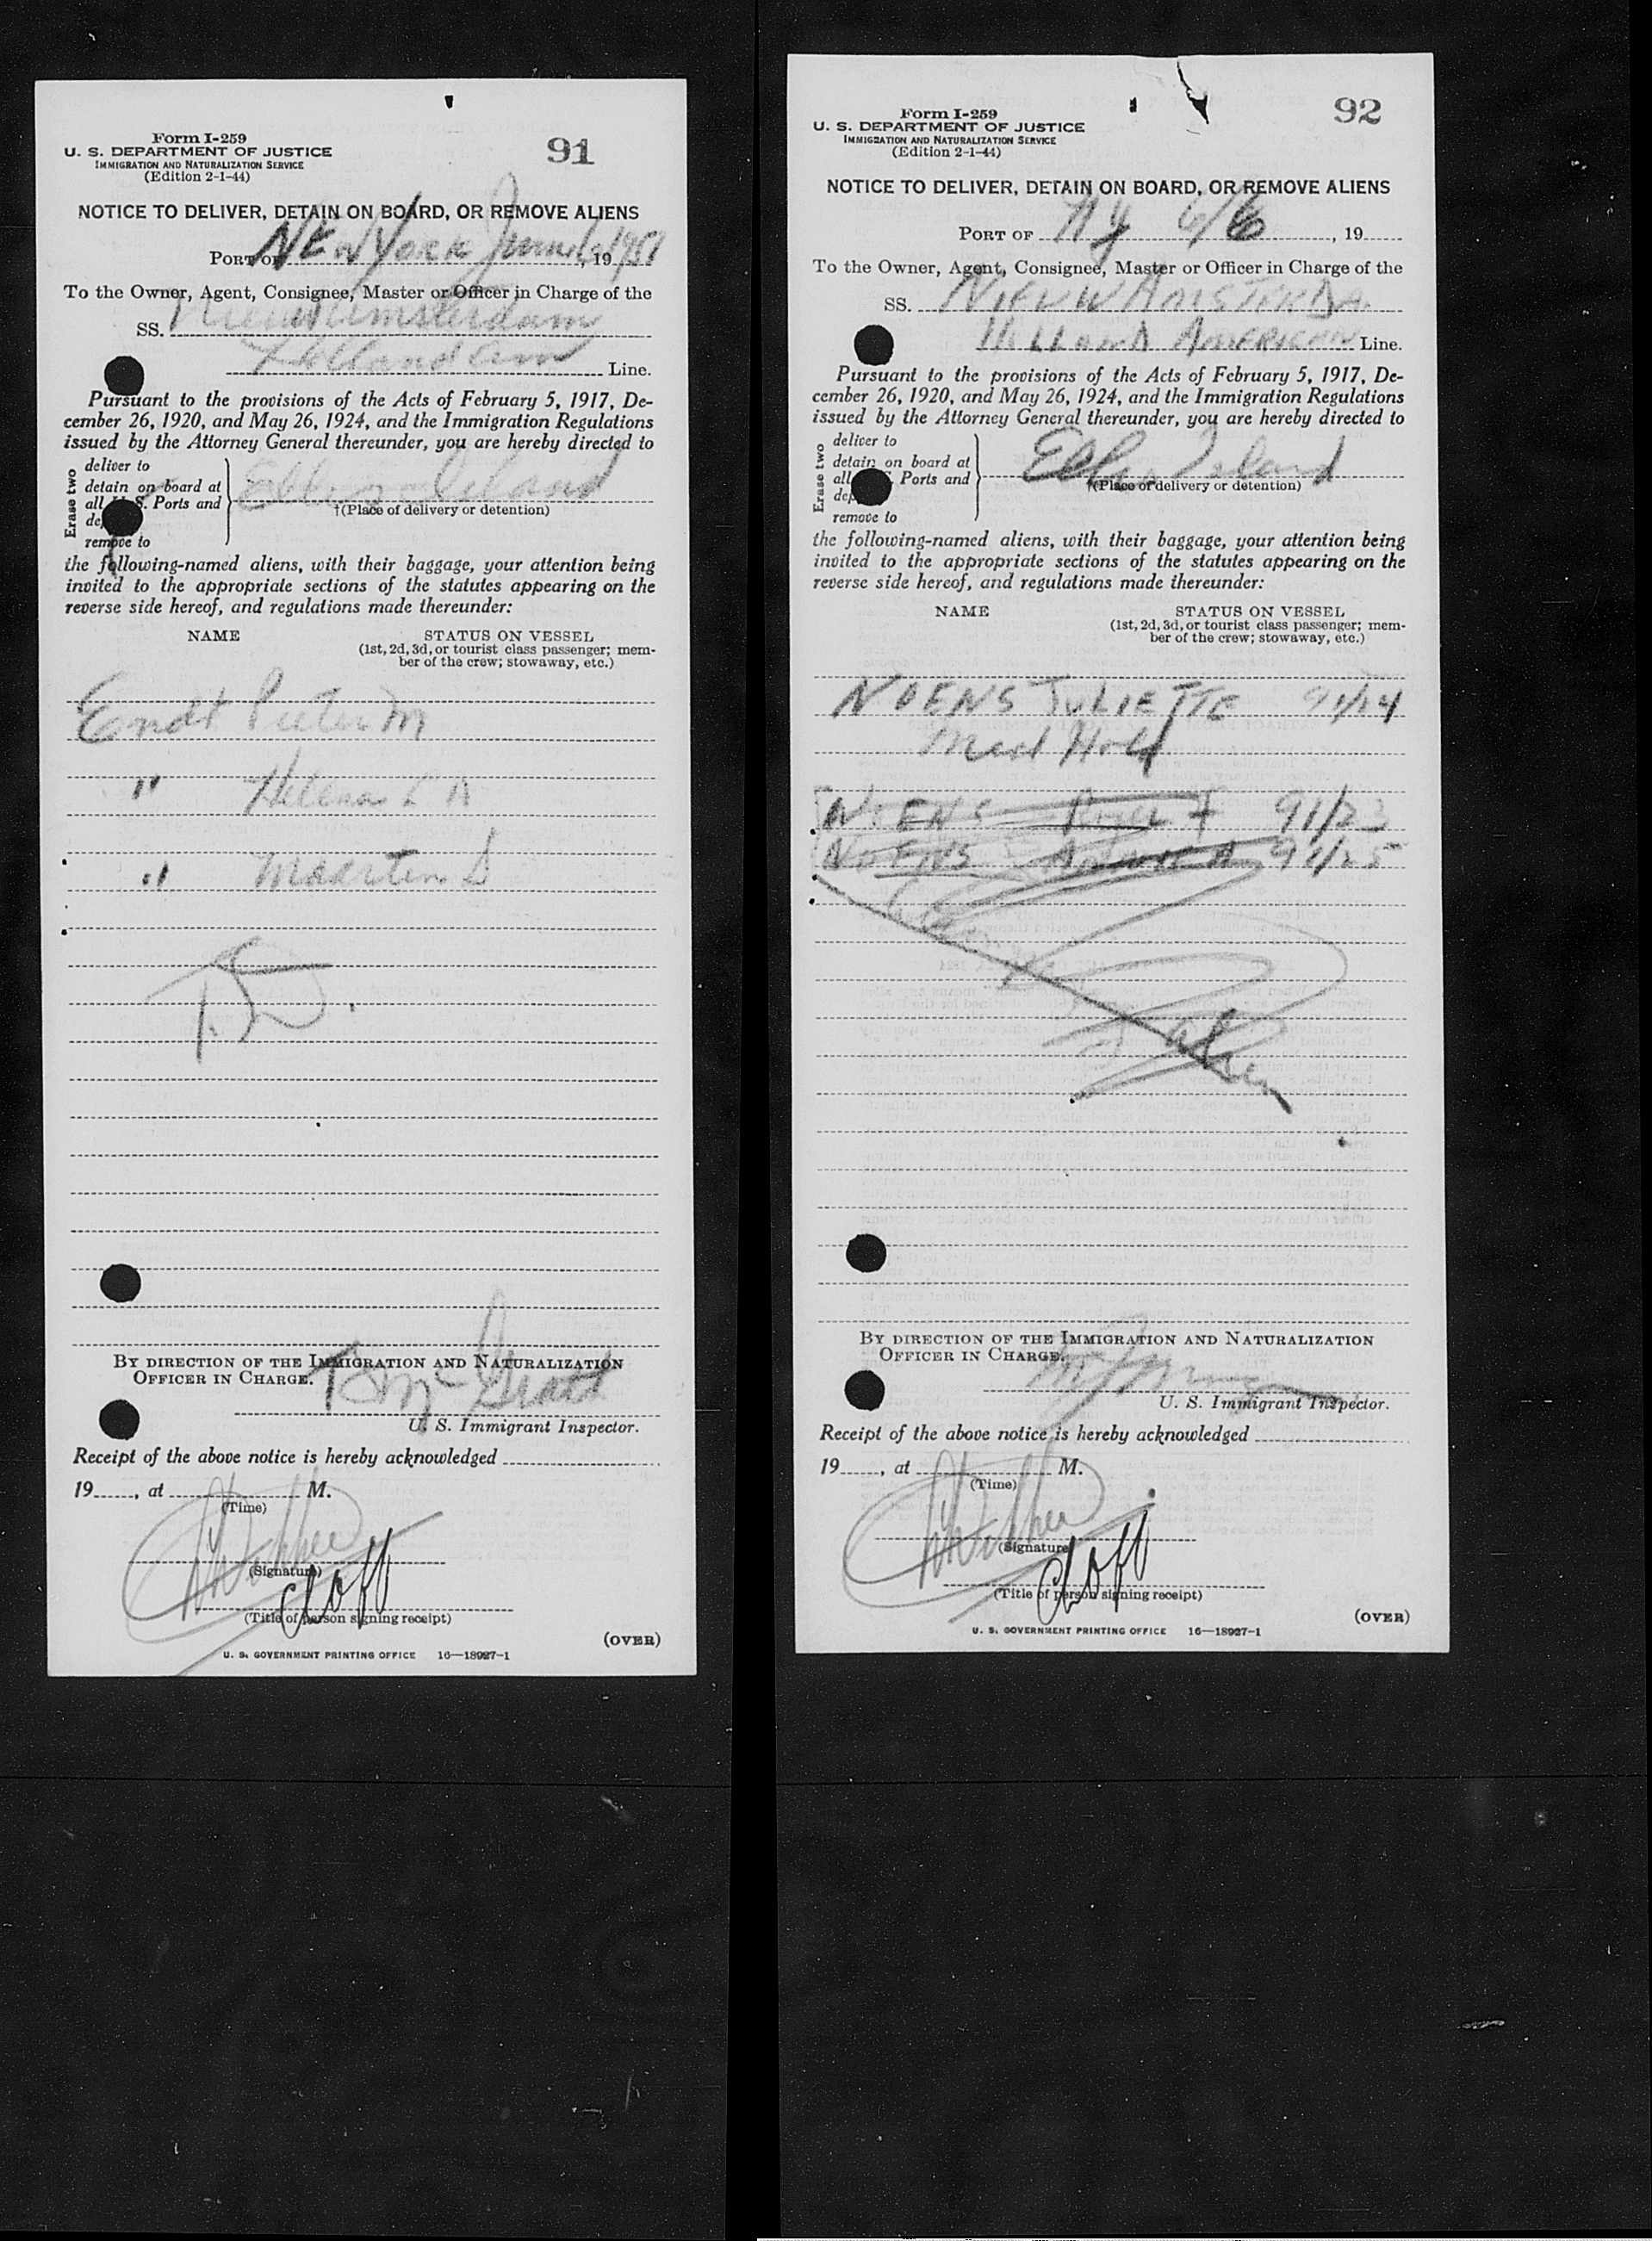 Form I-259
U. S. DEPARTMENT OF JUSTICE
IMMIGRATION AND NATURALIZATION SERVICE
(Edition 2-1-44)
91
NOTICE TO DELIVER, DETAIN ON BOARD, OR REMOVE ALIENS
PORT OF New York June 6, 1951
To the Owner, Agent, Consignee, Master or Officer in Charge of the
SS. Nieuw Amsterdam
Holland Am Line.
Pursuant to the provisions of the Acts of February 5, 1917, De-
cember 26, 1920, and May 26, 1924, and the Immigration Regulations
issued by the Attorney General thereunder, you are hereby directed to
Erase two
deliver to
detain on board at
all U.S. Ports and
remove to
Ellis Island
†(Place of delivery or detention)
the following-named aliens, with their baggage, your attention being
invited to the appropriate sections of the statutes appearing on the
reverse side hereof, and regulations made thereunder:
NAME STATUS ON VESSEL
(1st, 2d, 3d, or tourist class passenger; mem-
ber of the crew; stowaway, etc.)
Endt Pieter M
" Helena L A
" Maarten D
BY DIRECTION OF THE IMMIGRATION AND NATURALIZATION
OFFICER IN CHARGE.
U. S. Immigrant Inspector.
Receipt of the above notice is hereby acknowledged
19, at M.
(Time)
(Signature)
(Title of person signing receipt)
(OVER)
U. S. GOVERNMENT PRINTING OFFICE 16—18927-1
Form I-259
U. S. DEPARTMENT OF JUSTICE
IMMIGRATION AND NATURALIZATION SERVICE
(Edition 2-1-44)
92
NOTICE TO DELIVER, DETAIN ON BOARD, OR REMOVE ALIENS
PORT OF NY 6/6, 19
To the Owner, Agent, Consignee, Master or Officer in Charge of the
SS. NIEUW AMSTERDA
HOLLAND AMERICAN Line.
Pursuant to the provisions of the Acts of February 5, 1917, De-
cember 26, 1920, and May 26, 1924, and the Immigration Regulations
issued by the Attorney General thereunder, you are hereby directed to
Erase two
deliver to
detain on board at
all Ports and
remove to
Ellis Island
†(Place of delivery or detention)
the following-named aliens, with their baggage, your attention being
invited to the appropriate sections of the statutes appearing on the
reverse side hereof, and regulations made thereunder:
NAME STATUS ON VESSEL
(1st, 2d, 3d, or tourist class passenger; mem-
ber of the crew; stowaway, etc.)
NOENS JULIETTE 91/24
Med Hold
NOENS 91/23
NOENS 91/25
BY DIRECTION OF THE IMMIGRATION AND NATURALIZATION
OFFICER IN CHARGE.
U. S. Immigrant Inspector.
Receipt of the above notice is hereby acknowledged
19, at M.
(Time)
(Signature)
(Title of person signing receipt)
(OVER)
U. S. GOVERNMENT PRINTING OFFICE 16—18927-1